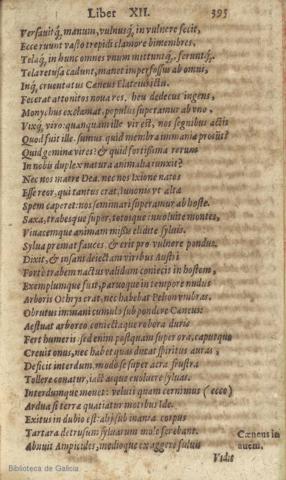 Liber XII. 395
Versauitq́, manum, vulnusq́, in vulnere fecit,
Ecce ruunt vasto trepidi clamore bimembres,
Telaq́, in hunc omnes vnum mittuntq́, feruntq́.
Tela retusa cadunt, manet imperfossus ab omni,
Inq́, cruentatus Cæneus Elateius ictu.
Fecerat attonitos noua res. heu dedecus ingens,
Monychus exclamat, populus superamur ab vno,
Vixq́, viro: quanquam ille vir est, nos segnibus actis
Quod fuit ille sumus. quid membra immania prosũt?
Quid geminæ vires? & quid fortissima rerum
In nobis duplex natura animalia iunxit?
Nec nos matre Dea, nec nos Ixione natos
Esse reor, qui tantus erat, Iunonis vt altæ
Spem caperet: nos semimari superamur ab hoste.
Saxa, trabesque super, totosque inuoluite montes,
Viuacemque animam missis elidite syluis.
Sylua premat fauces. & erit pro vulnere pondus.
Dixit, & insani deiectam viribus Austri
Fortè trabem nactus validum coniecit in hostem,
Exemplumque fuit, paruoque in tempore nudus
Arboris Othrys erat, nec habebat Pelion vmbras.
Obrutus immani cumulo sub pondere Cæneus
Aestuat arboreo coniectaque robora duris
Fert humeris: sed enim postquam super ora, caputque
Creuit onus, nec habet quas ducat spiritus auras,
Deficit interdum, modò se super aera frustra
Tollere conatur, iactasque euoluere syluas.
Interdumque mouet: veluti quam cernimus (ecce)
Ardua si terræ quatiatur motibus Ide.
Exitus in dubio est: alij sub inania corpus
Tartara detrusum syluarum mole ferebant.
Abnuit Ampicides, medioque ex aggere fuluis
Cæneus in
auem.
Vidit
Biblioteca de Galicia